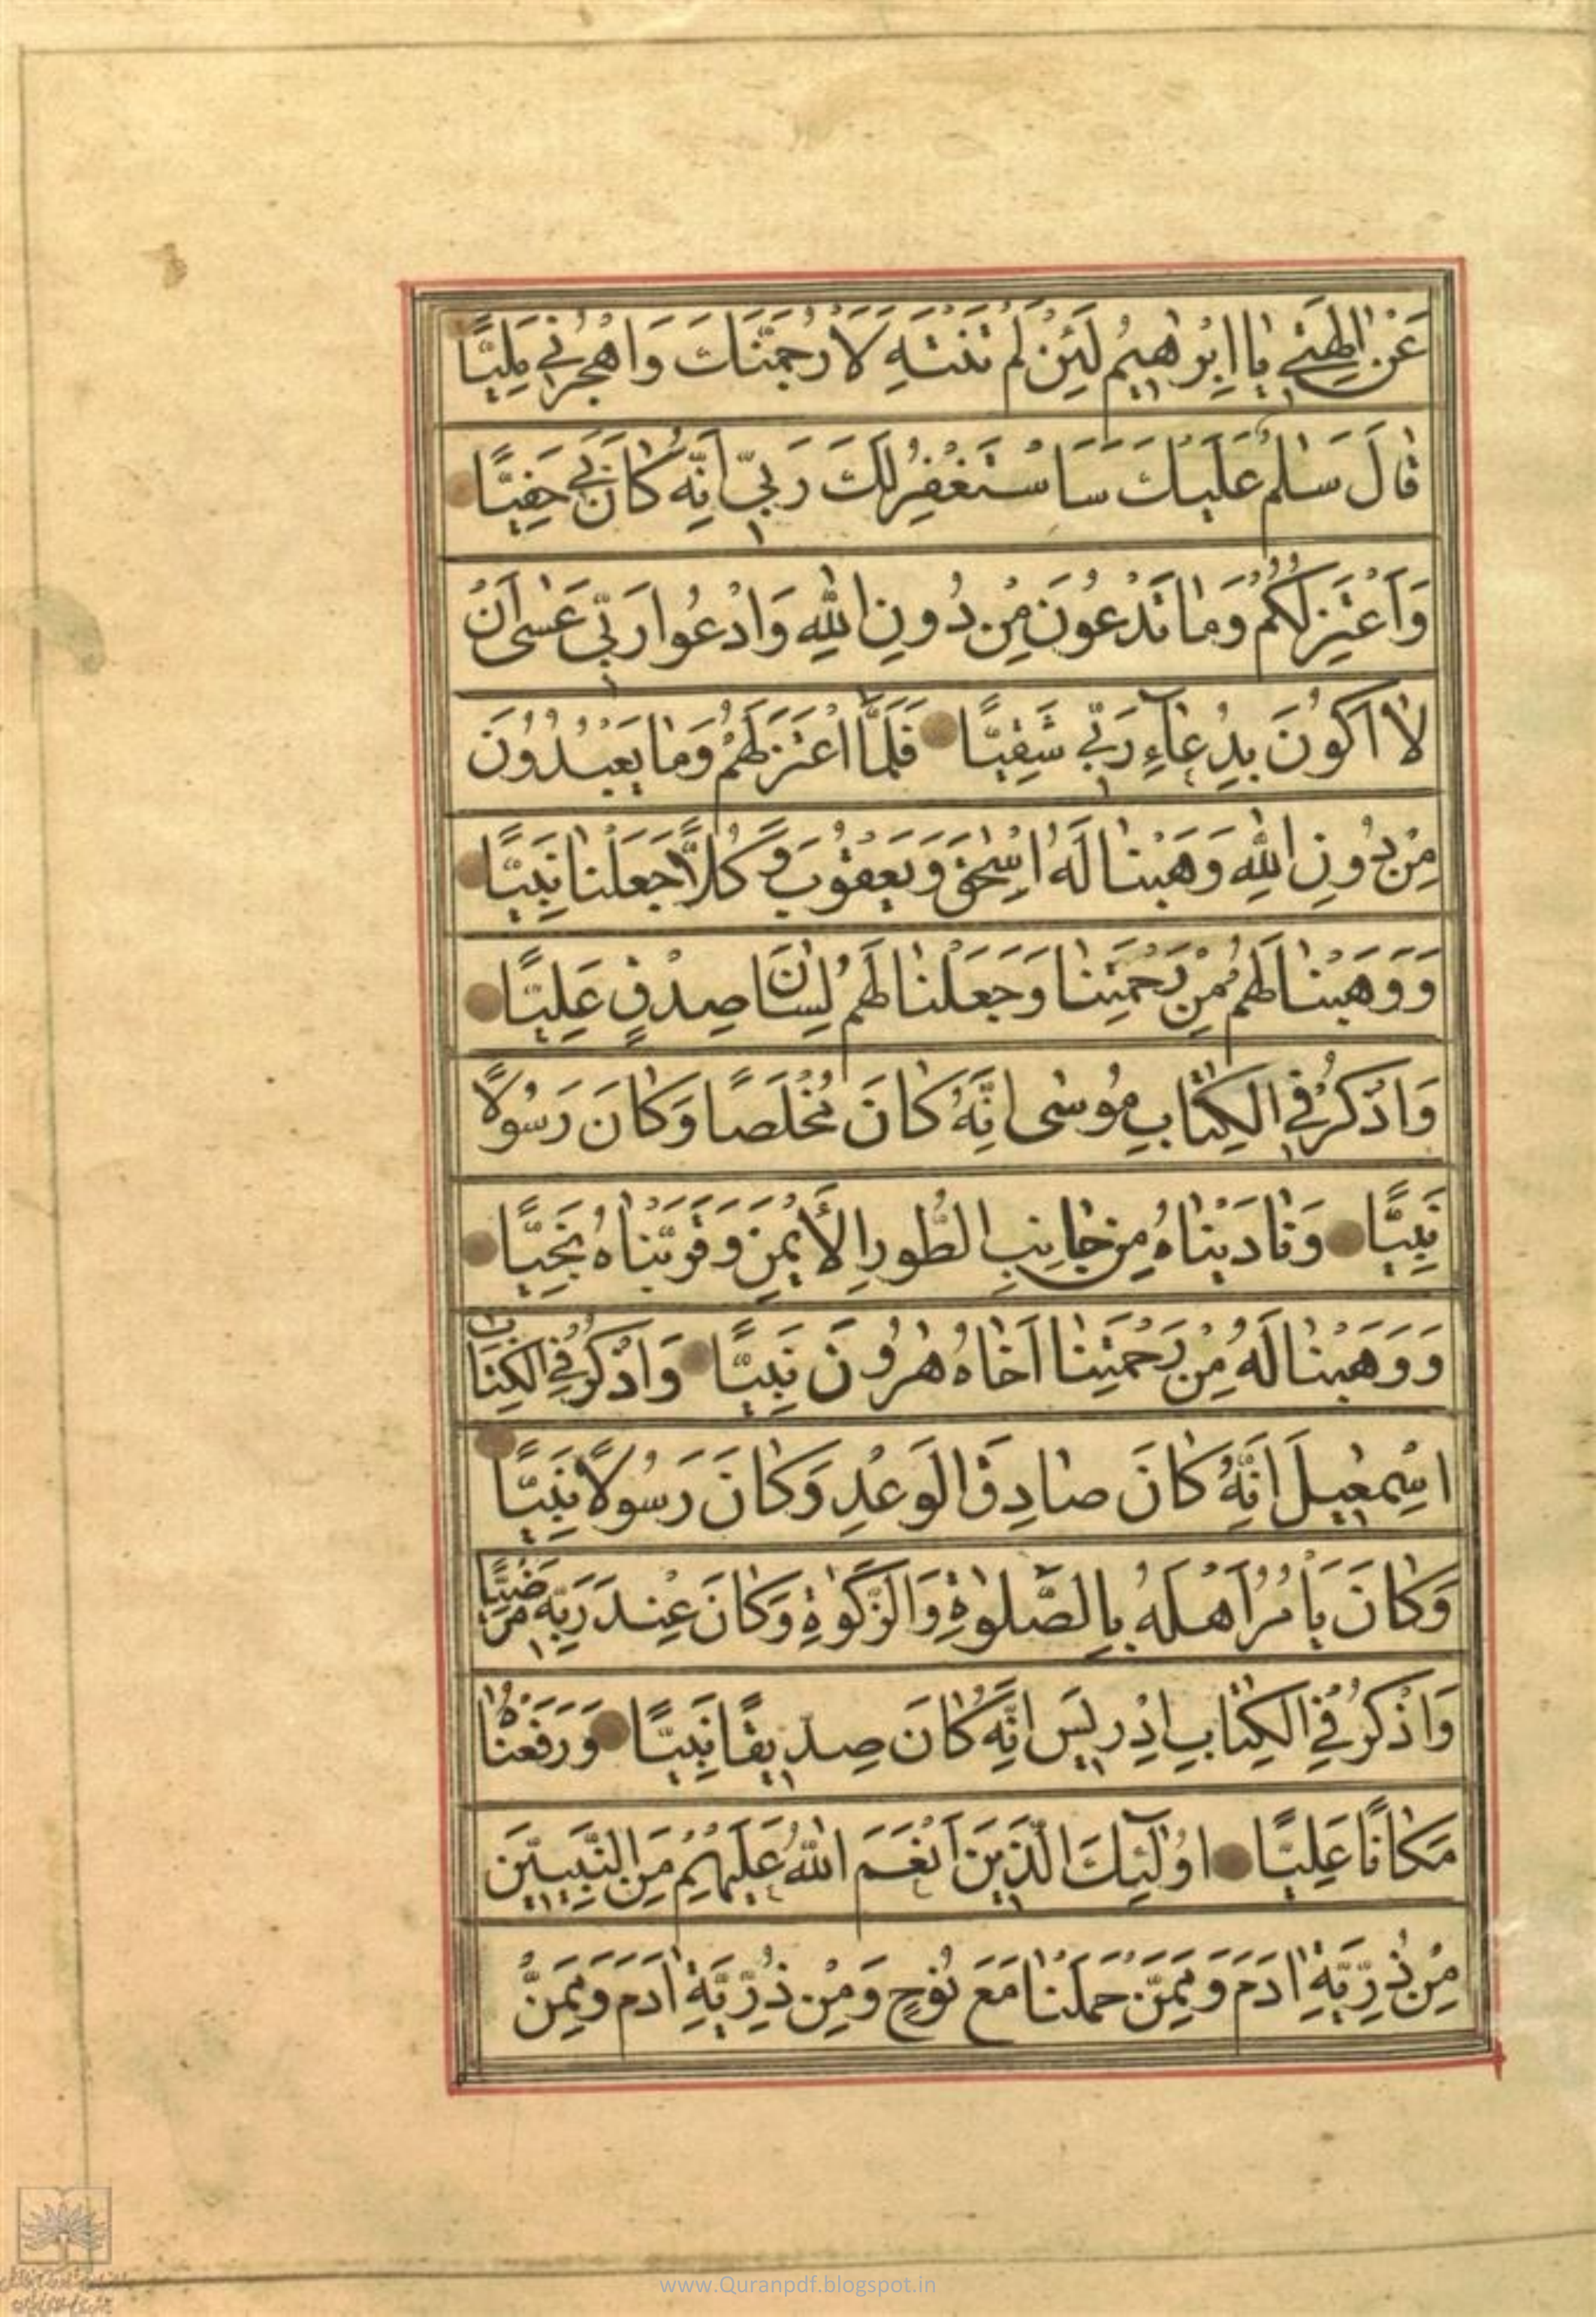 عَنْ اٰلِهَتِي يٰا اِبْرٰهيمُ لَئِنْ لَمْ تَنْتَهِ لَاَرْجُمَنَّكَ وَاهْجُرْني مَلِيًّا
قٰالَ سَلٰمٌ عَلَيْكَ سَاَسْتَغْفِرُ لَكَ رَبّي اِنَّهُ كٰانَ بي حَفِيًّا
وَاَعْتَزِلُكُمْ وَمٰا تَدْعُونَ مِنْ دُونِ اللّٰهِ وَاَدْعُوا رَبّي عَسٰى اَنْ
لٰا اَكُونَ بِدُعٰآءِ رَبّي شَقِيًّا فَلَمَّا اعْتَزَلَهُمْ وَمٰا يَعْبُدُونَ
مِنْ دُونِ اللّٰهِ وَهَبْنٰا لَهُ اِسْحٰقَ وَيَعْقُوبَ وَكُلًّا جَعَلْنٰا نَبِيًّا
وَوَهَبْنٰا لَهُمْ مِنْ رَحْمَتِنٰا وَجَعَلْنٰا لَهُمْ لِسٰانَ صِدْقٍ عَلِيًّا
وَاذْكُرْ فِي الْكِتٰابِ مُوسٰى اِنَّهُ كٰانَ مُخْلَصًا وَكٰانَ رَسُولًا
نَبِيًّا وَنٰادَيْنٰاهُ مِنْ جٰانِبِ الطُّورِ الْاَيْمَنِ وَقَرَّبْنٰاهُ نَجِيًّا
وَوَهَبْنٰا لَهُ مِنْ رَحْمَتِنٰا اَخٰاهُ هٰرُونَ نَبِيًّا وَاذْكُرْ فِي الْكِتٰابِ
اِسْمٰعيلَ اِنَّهُ كٰانَ صٰادِقَ الْوَعْدِ وَكٰانَ رَسُولًا نَبِيًّا
وَكٰانَ يَاْمُرُ اَهْلَهُ بِالصَّلٰوةِ وَالزَّكٰوةِ وَكٰانَ عِنْدَ رَبِّه مَرْضِيًّا
وَاذْكُرْ فِي الْكِتٰابِ اِدْريسَ اِنَّهُ كٰانَ صِدّيقًا نَبِيًّا وَرَفَعْنٰاهُ
مَكٰانًا عَلِيًّا اُولٰٓئِكَ الَّذينَ اَنْعَمَ اللّٰهُ عَلَيْهِمْ مِنَ النَّبِيّينَ
مِنْ ذُرِّيَّةِ اٰدَمَ وَمِمَّنْ حَمَلْنٰا مَعَ نُوحٍ وَمِنْ ذُرِّيَّةِ اٰدَمَ وَمِمَّنْ
www.Quranpdf.blogspot.in